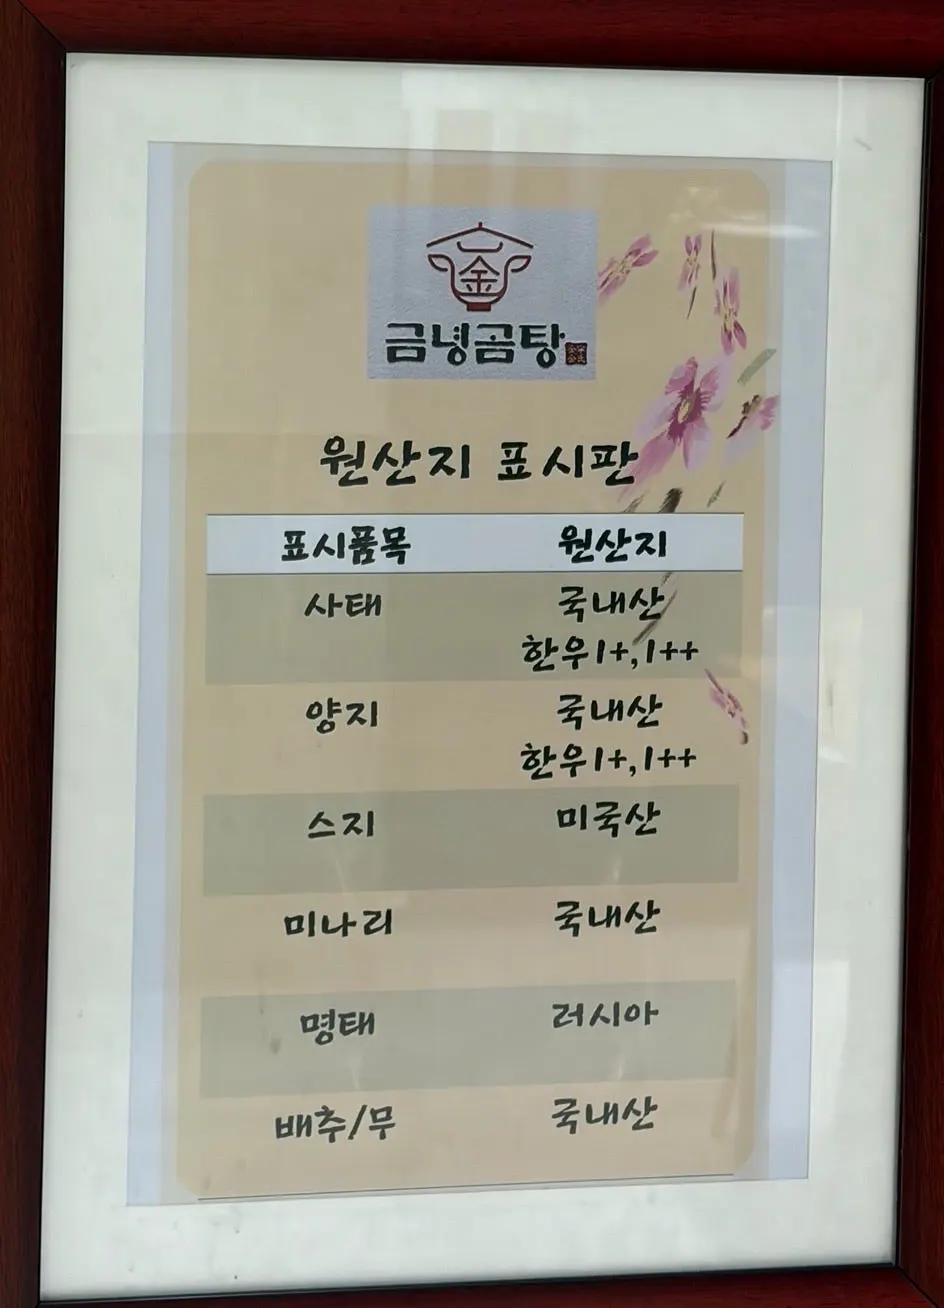 金
금녕곰탕
원산지 표시판
표시품목 원산지
사태 국내산
한우1+,1++
양지 국내산
한우1+,1++
스지 미국산
미나리 국내산
명태 러시아
배추/무 국내산